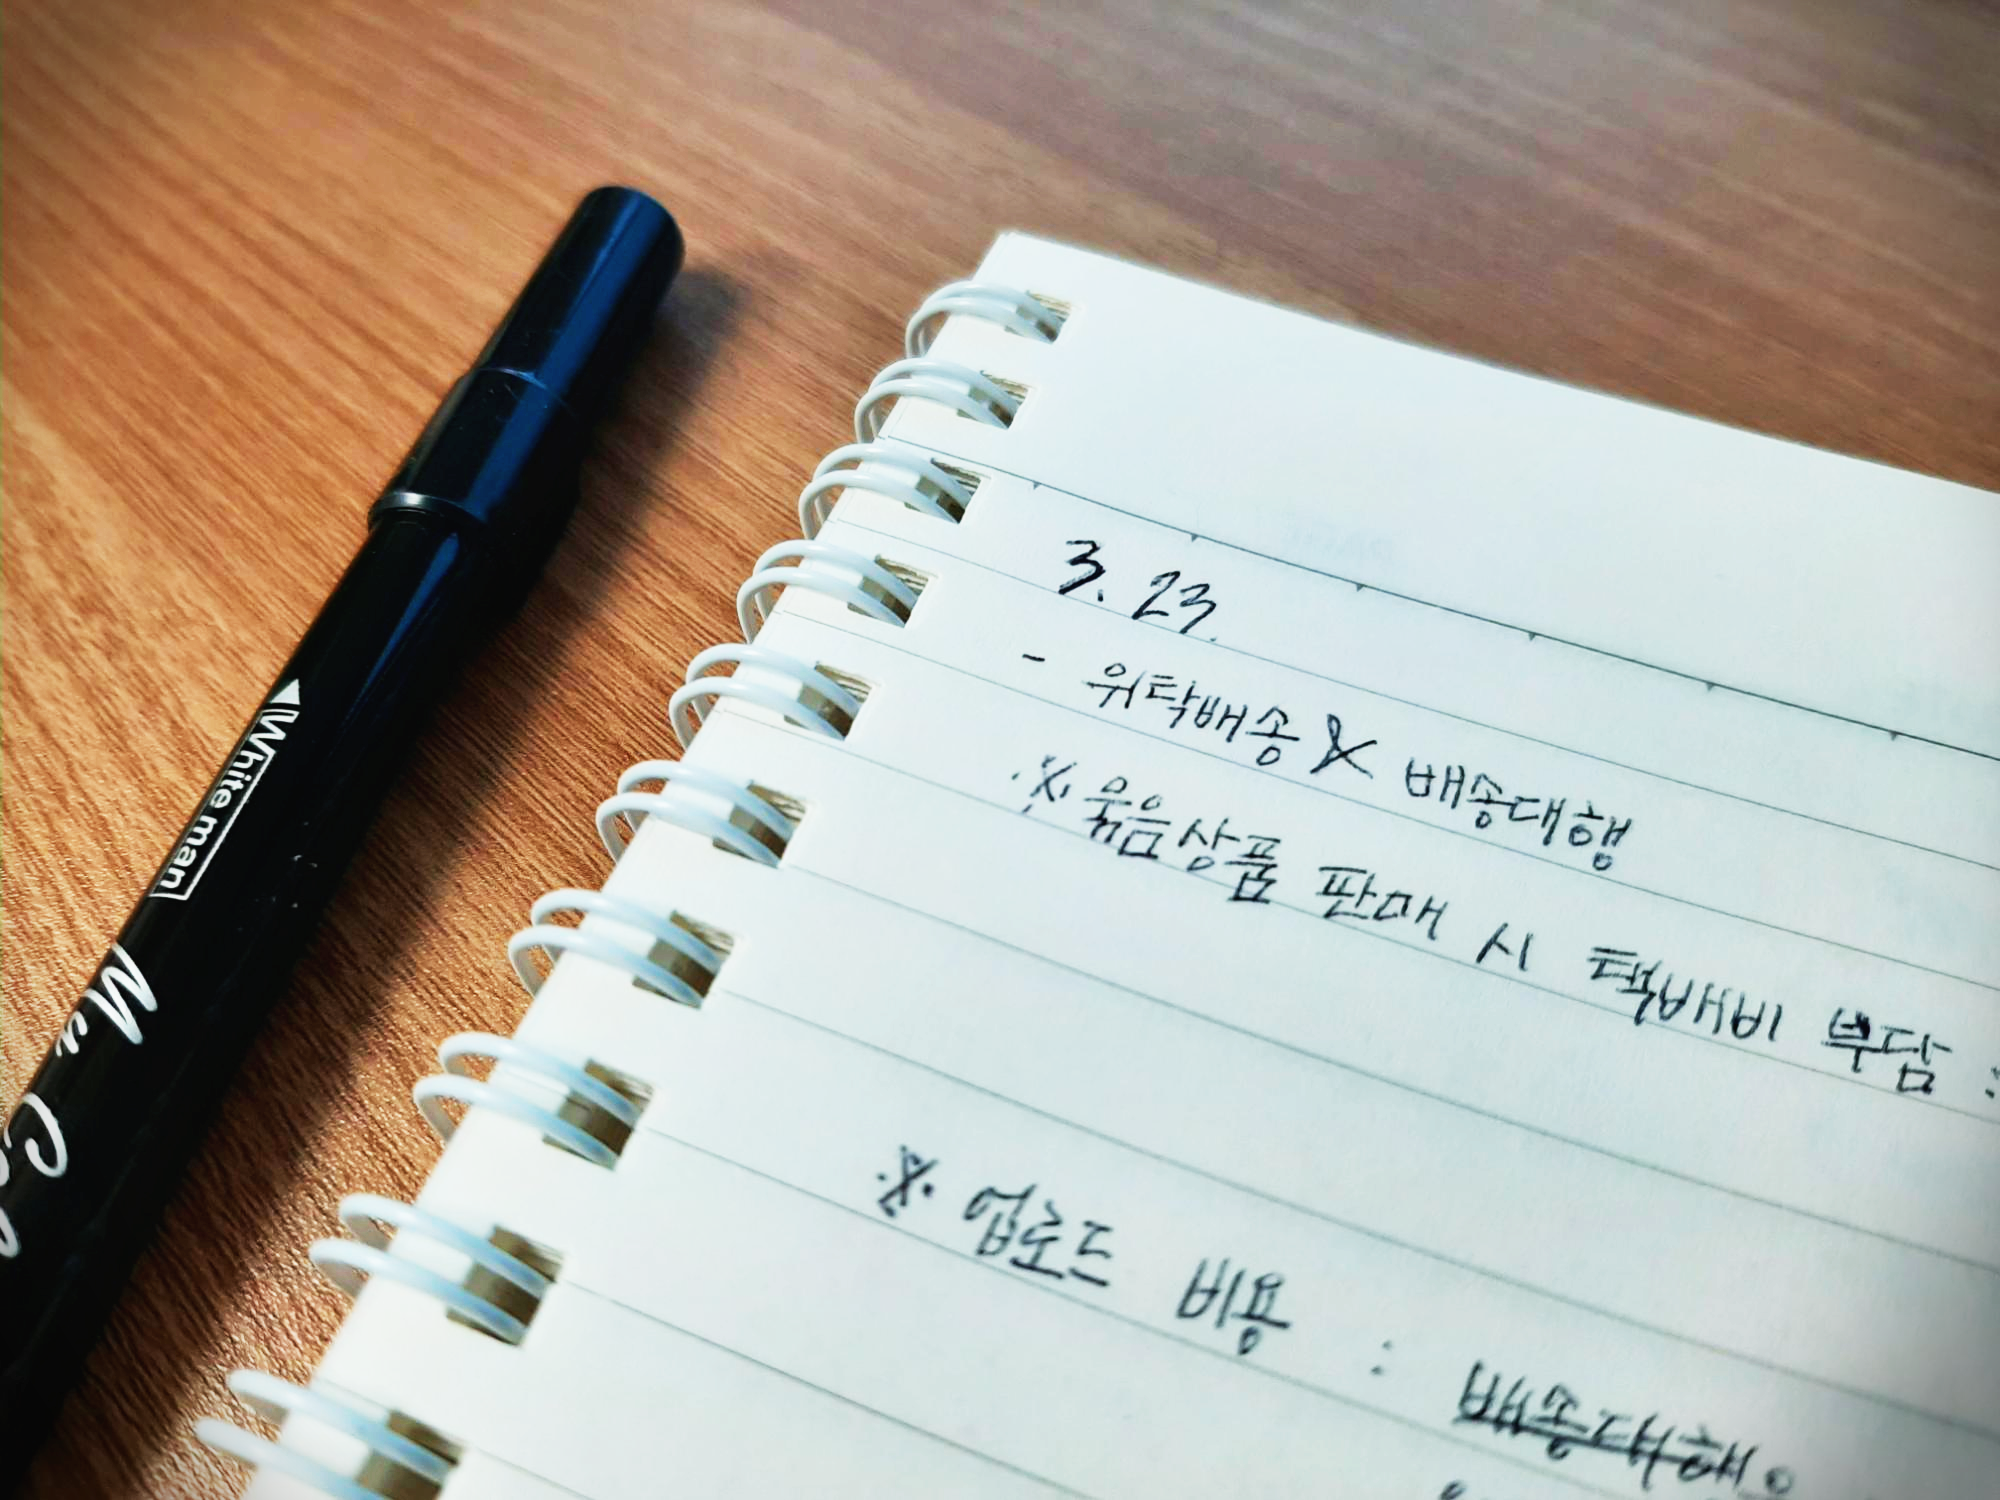 3. 23.
- 위탁배송 & 배송대행
※ 묶음상품 판매 시 택배비 부담 :
※ 업로드 비용 : 배송대행
White man